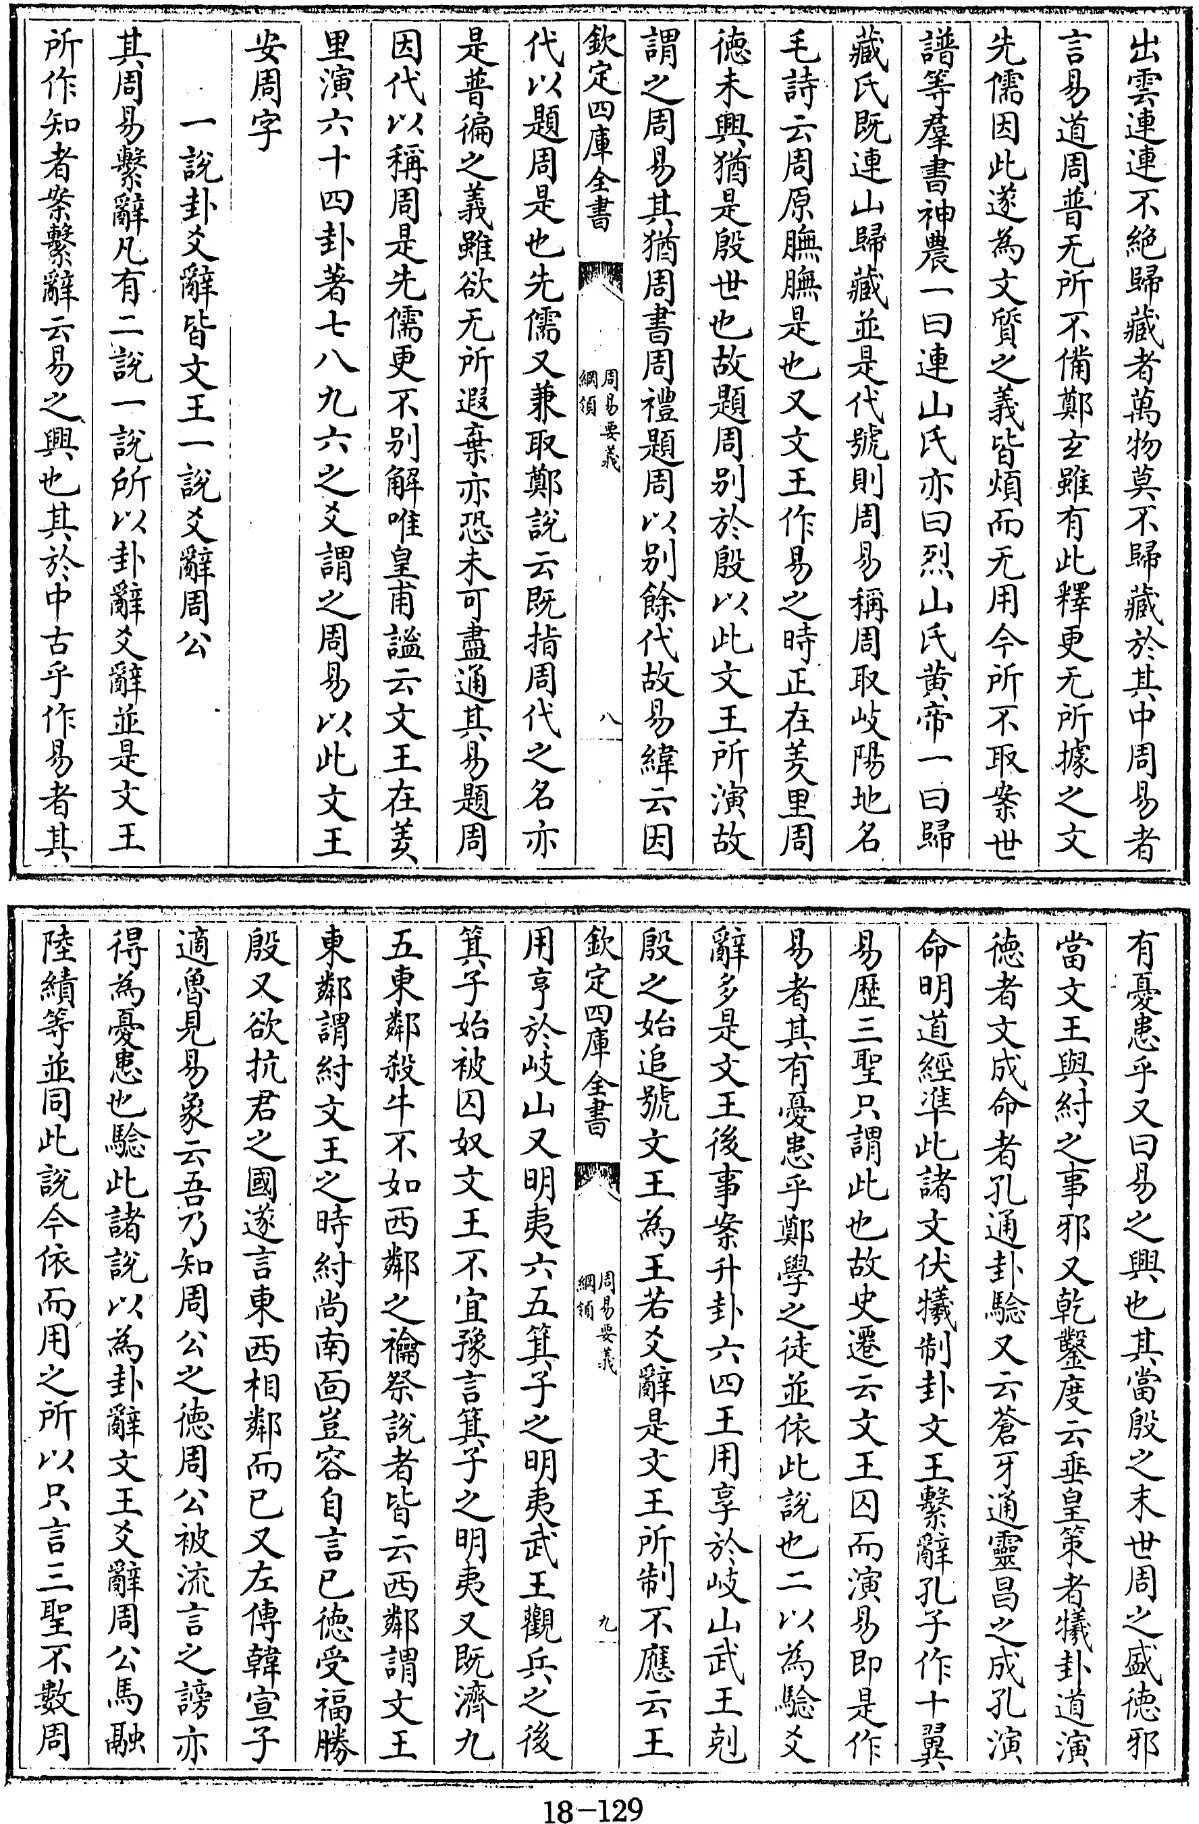 出雲連連不絶歸藏者萬物莫不歸藏於其中周易者
言易道周普无所不備鄭玄雖有此釋更无所據之文
先儒因此遂為文質之義皆煩而无用今所不取案世
譜等羣書神農一曰連山氏亦曰烈山氏黄帝一曰歸
藏氏既連山歸藏並是代號則周易稱周取岐陽地名
毛詩云周原膴膴是也又文王作易之時正在羑里周
徳未興猶是殷世也故題周别於殷以此文王所演故
謂之周易其猶周書周禮題周以别餘代故易緯云因
欽定四庫全書
周易要義
綱領
八
代以題周是也先儒又兼取鄭說云既指周代之名亦
是普徧之義雖欲无所遐棄亦恐未可盡通其易題周
因代以稱周是先儒更不别解唯皇甫謐云文王在羑
里演六十四卦著七八九六之爻謂之周易以此文王
安周字
一說卦爻辭皆文王一說爻辭周公
其周易繫辭凡有二說一說所以卦辭爻辭並是文王
所作知者案繫辭云易之興也其於中古乎作易者其
有憂患乎又曰易之興也其當殷之末世周之盛徳邪
當文王與紂之事邪又乾鑿度云垂皇策者犧卦道演
徳者文成命者孔通卦驗又云蒼牙通靈昌之成孔演
命明道經準此諸文伏犧制卦文王繫辭孔子作十翼
易歴三聖只謂此也故史遷云文王囚而演易即是作
易者其有憂患乎鄭學之徒並依此說也二以為驗爻
辭多是文王後事案升卦六四王用享於岐山武王剋
殷之始追號文王為王若爻辭是文王所制不應云王
欽定四庫全書
周易要義
綱領
九
用亨於岐山又明夷六五箕子之明夷武王觀兵之後
箕子始被囚奴文王不宜豫言箕子之明夷又既濟九
五東鄰殺牛不如西鄰之禴祭說者皆云西鄰謂文王
東鄰謂紂文王之時紂尚南面豈容自言已徳受福勝
殷又欲抗君之國遂言東西相鄰而已又左傳韓宣子
適魯見易象云吾乃知周公之徳周公被流言之謗亦
得為憂患也驗此諸說以為卦辭文王爻辭周公馬融
陸績等並同此說今依而用之所以只言三聖不數周
18-129